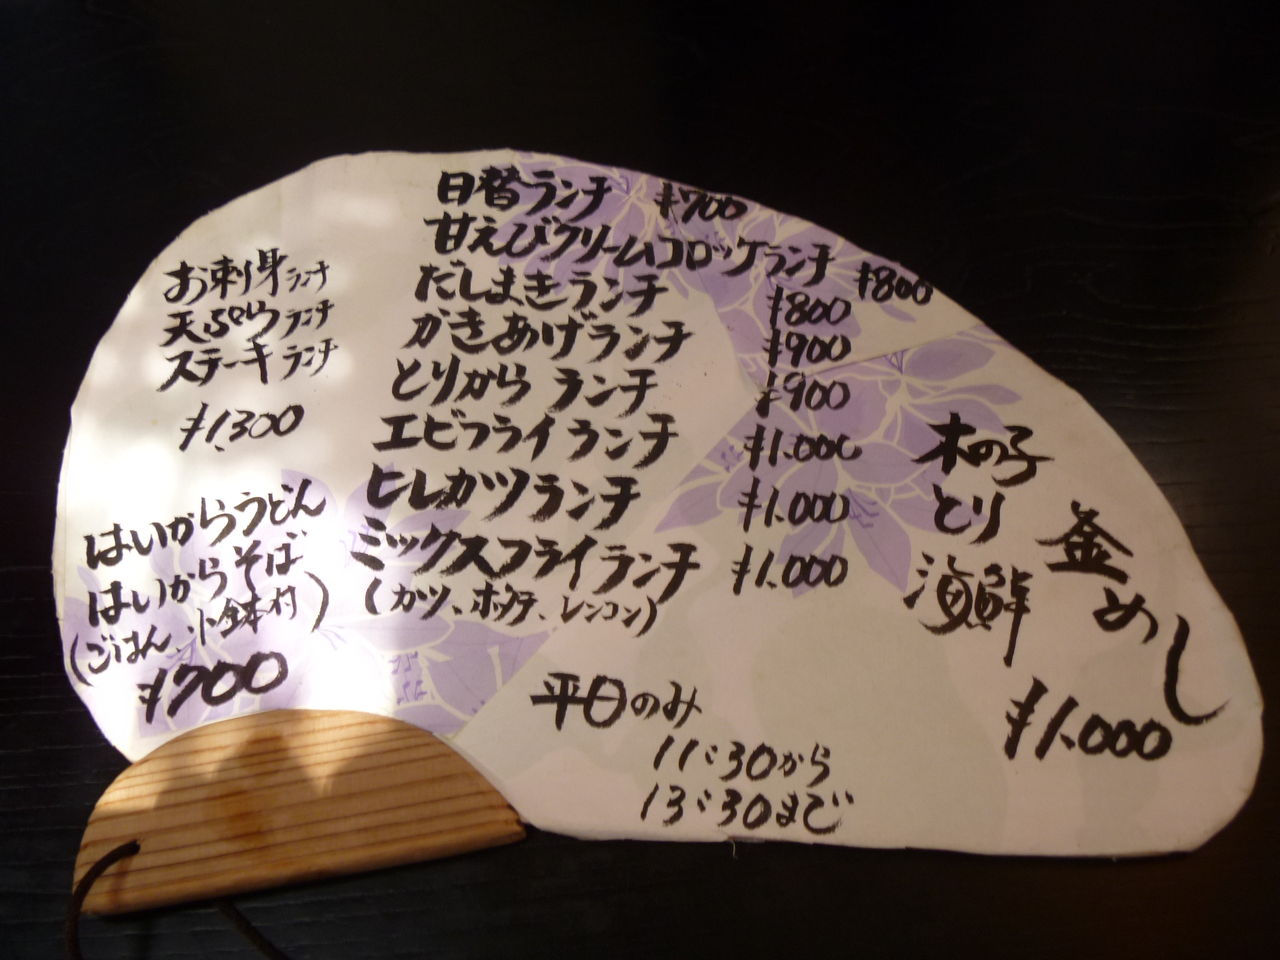 日替ランチ ¥700
甘えびクリームコロッケランチ ¥800
だしまきランチ ¥800
かきあげランチ ¥900
とりから ランチ ¥900
エビフライランチ ¥1.000
ヒレカツランチ ¥1.000
ミックスフライランチ ¥1.000
(カツ、ホタテ、レンコン)
お刺身ランチ
天ぷらランチ
ステーキランチ
¥1,300
はいからうどん
はいからそば
(ごはん、小鉢付)
¥700
木の子
とり
海鮮
釜めし
¥1.000
平日のみ
11:30から
13:30まで